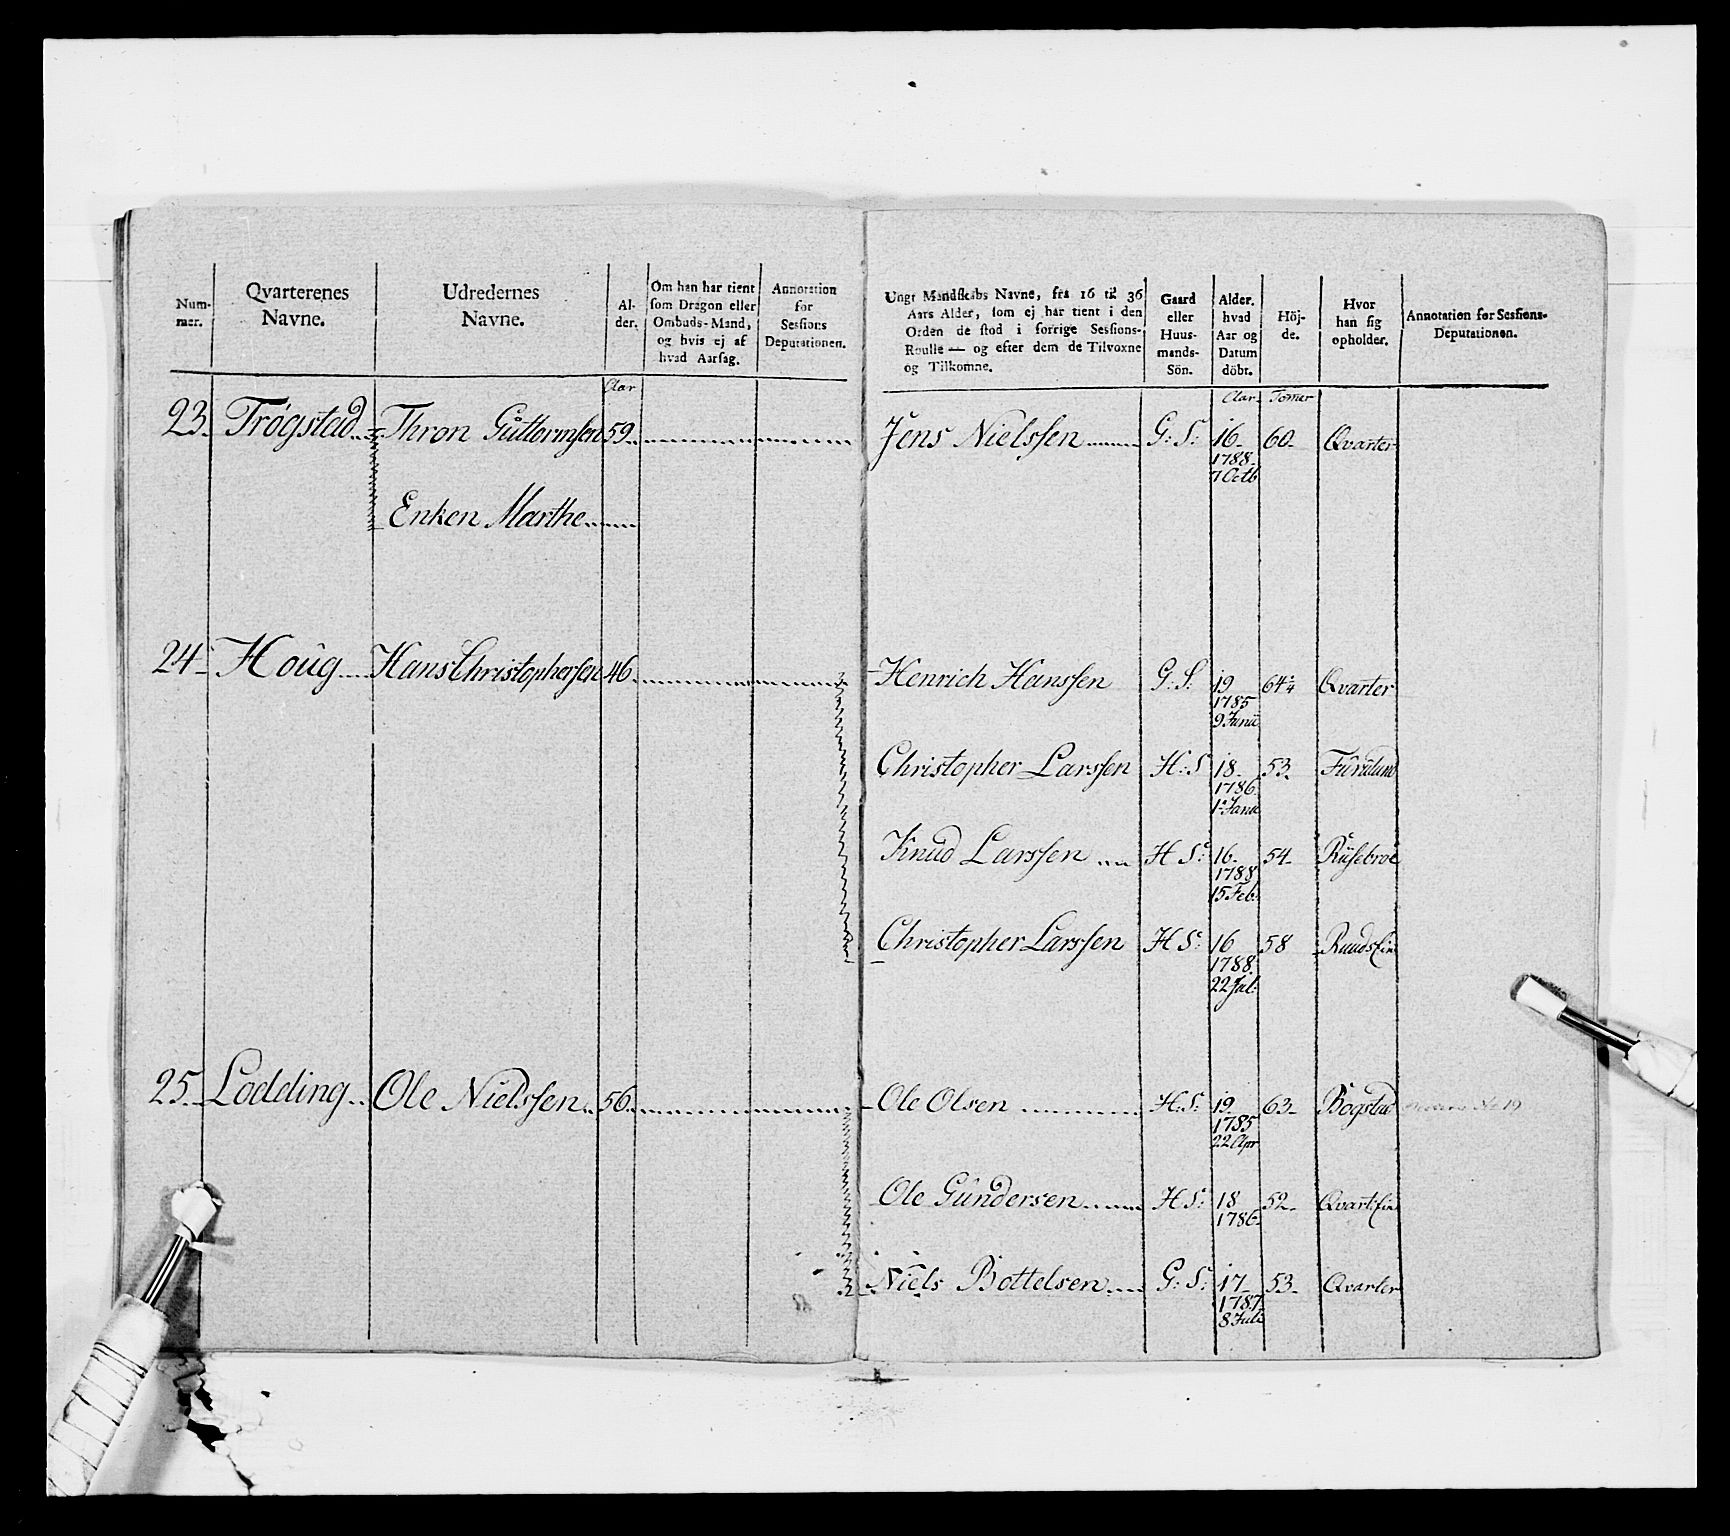 Num-
mer.
Qvarterenes
Navne.
Udredernes
Navne.
Al-
der.
Om han har tient
som Dragon eller
Ombuds-Mand,
og hvis ej af
hvad Aarsag.
Annotation
for
Sessions
Deputationen.
Aar
23. Trøgstad Thron Guttormsen 59
Enken Marthe
24 Houg Hans Christophersen 46
25. Lodding Ole Nielssen 56
Ungt Mandskabs Navne, fra 16 til 36
Aars Alder, som ej har tient i den
Orden de stod i forrige Sessions-
Roulle — og efter dem de Tilvoxne
og Tilkomne.
Gaard
eller
Huus-
mands-
Sön.
Alder.
hvad
Aar og
Datum
döbt.
Höj-
de.
Hvor
han sig
opholder.
Annotation for Sessions-
Deputationen.
Aar Tomer
Jens Nielssen G: S: 16 60 Qvarter
1788
7 Octb
Henrich Hanssen G: S: 19 64¼ Qvarter
1785
9 Junii
Christopher Larssen H: S 18 53 Furulund
1786
1 Janu
Knud Larssen H S: 16 54
1788
15 Feb:
Christopher Larssen H S: 16 58
1788
22 Jul:
Ole Olsen H: S: 19 63 Bogstad No 19
1785
22 Apr
Ole Gundersen H S: 18 52
1786
Niels Bottelsen G: S: 17 53 Qvarter
1787
8 Juli